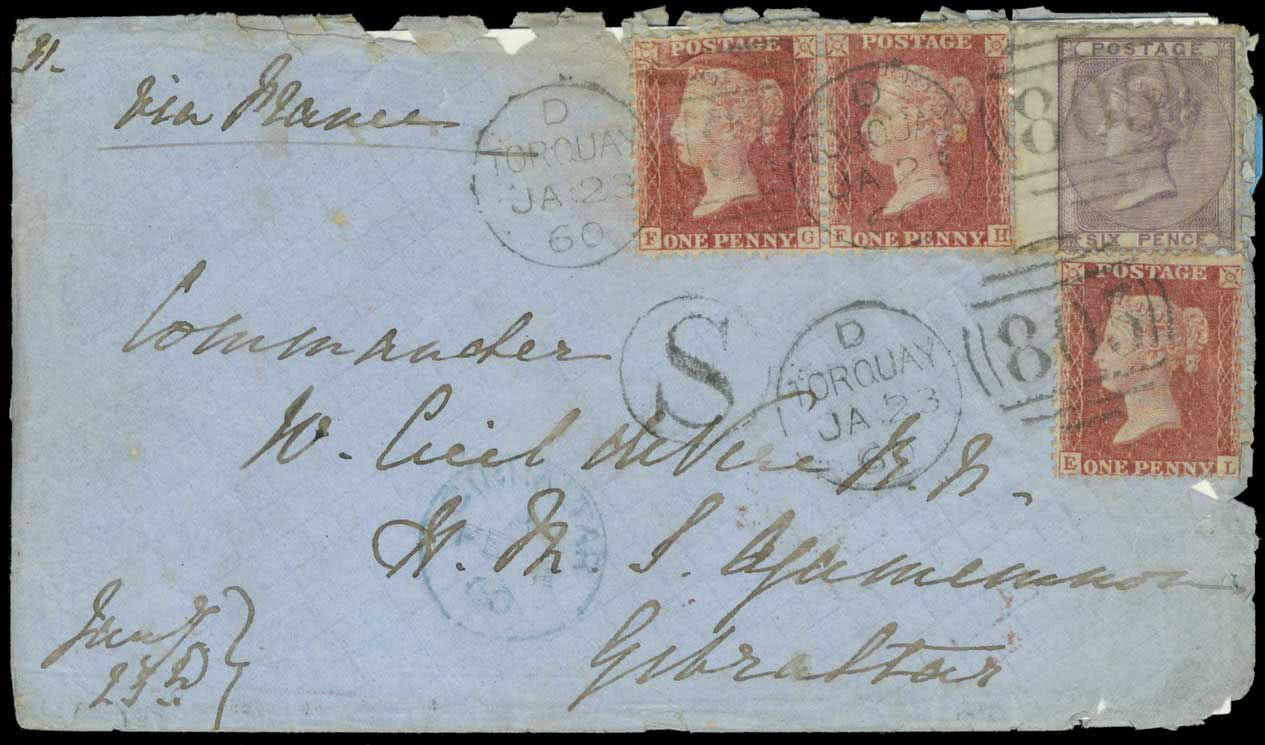 31-
via France
POSTAGE
F ONE PENNY G
POSTAGE
F ONE PENNY H
POSTAGE
SIX PENCE
POSTAGE
E ONE PENNY L
D
TORQUAY
JA 23
60
D
TORQUAY
JA 2
805
805
S
D
TORQUAY
JA 23
60
Commander
W. Cecil deVere R. N.
H. M S. Agamemnon
Gibraltar
GIBRALTAR
FE
60
Jany
23rd